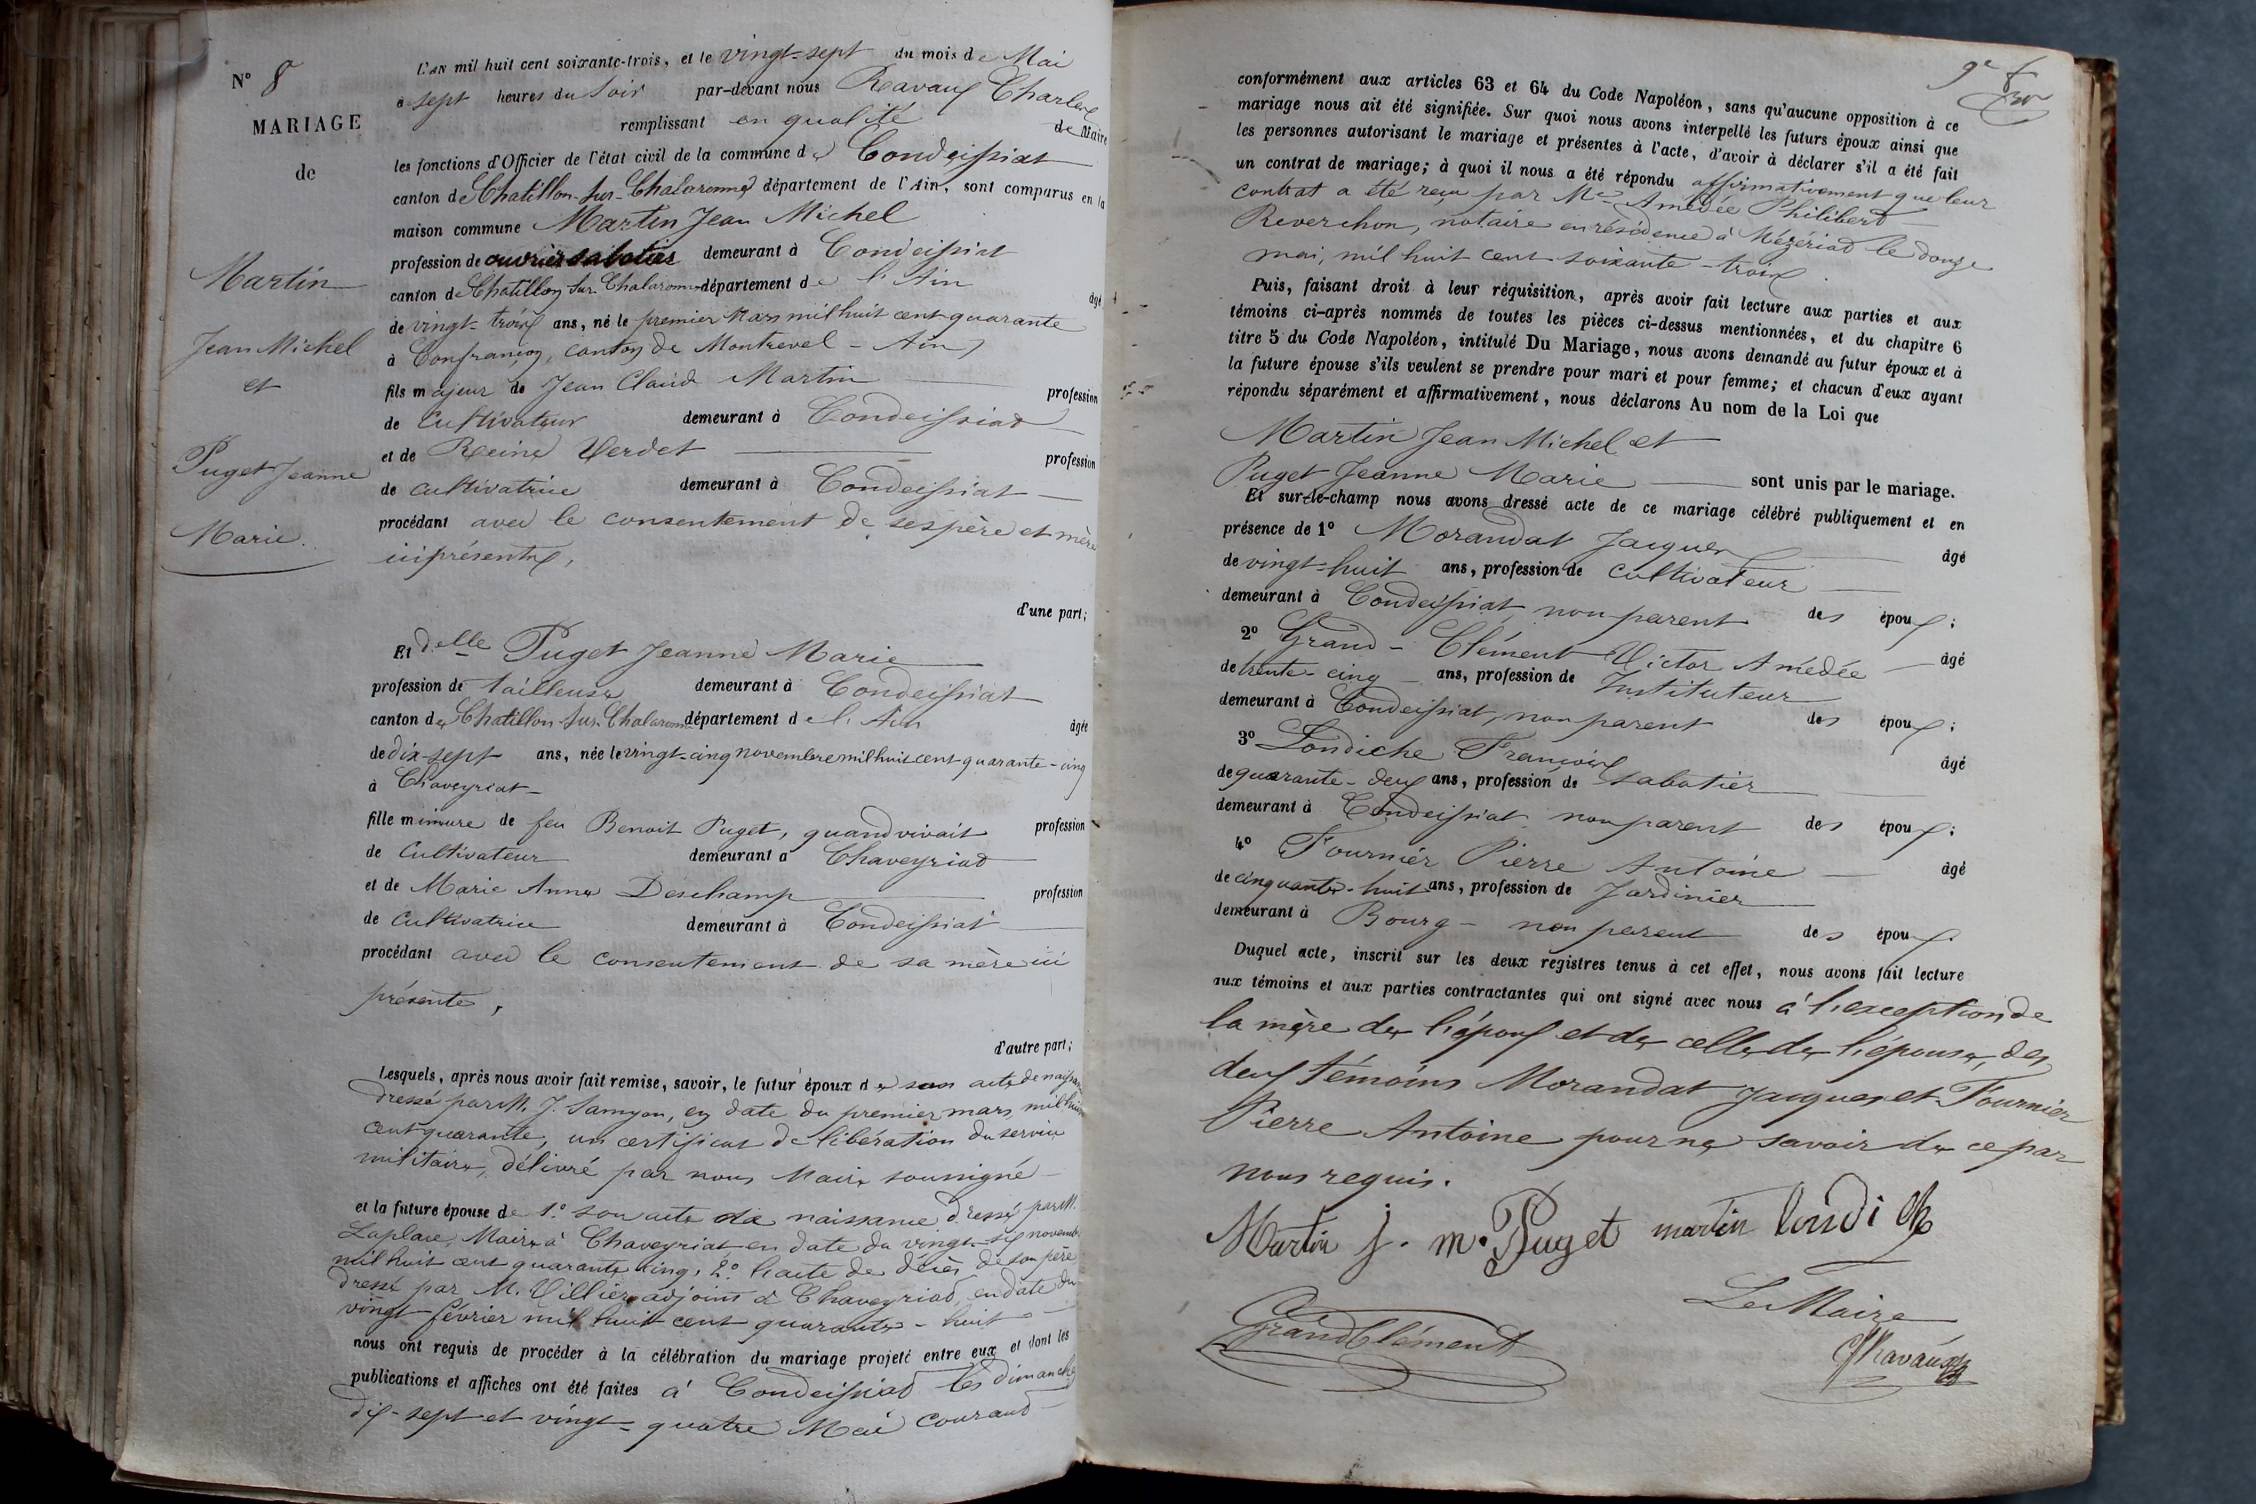 N° 8
MARIAGE
de
Martin
Jean Michel
et
Puget Jeanne
Marie.
L'AN mil huit cent soixante-trois, et le vingt-sept du mois de Mai
à sept heures du Soir par-devant nous Ravaux Charles
remplissant en qualité de Maire
les fonctions d'Officier de l'état civil de la commune de Condeissiat
canton de Chatillon-sur-Chalaronne département de l'Ain, sont comparus en la
maison commune Martin Jean Michel
profession de ouvrier sabotier demeurant à Condeissiat
canton de Chatillon sur Chalaronne département de l'Ain âgé
de vingt-trois ans, né le premier Mars mil huit cent quarante
à Confrançon, canton de Montrevel - Ain,
fils majeur de Jean Claude Martin profession
de Cultivateur demeurant à Condeissiat
et de Reine Verdet profession
de cultivatrice demeurant à Condeissiat
procédant avec le consentement de ses père et mère
ici présents,
d'une part;
Et delle Puget Jeanne Marie
profession de tailleuse demeurant à Condeissiat
canton de Chatillon-sur-Chalaronne département de l'Ain âgée
de dix-sept ans, née le vingt-cinq novembre mil huit cent quarante-cinq
à Chaveyriat
fille mineure de feu Benoit Puget, quand vivait profession
de Cultivateur demeurant à Chaveyriat
et de Marie Anne Deschamp profession
de Cultivatrice demeurant à Condeissiat
procédant avec le consentement de sa mère ici
présente,
d'autre part;
Lesquels, après nous avoir fait remise, savoir, le futur époux de son acte de naissance
dressé par M. J. , en date du premier mars mil huit
cent quarante, un certificat de libération du service
militaire, délivré par nous Maire soussigné
et la future épouse de 1.° son acte de naissance dressé par M.
Laplace, Maire à Chaveyriat en date du vingt-six novembre
mil huit cent quarante cinq, 2.° l'acte de décès de son père
dressé par M. Villier adjoint à Chaveyriat, en date du
vingt février mil huit cent quarante-huit
nous ont requis de procéder à la célébration du mariage projeté entre eux et dont les
publications et affiches ont été faites à Condeissiat les dimanches
dix-sept et vingt-quatre Mai courant
conformément aux articles 63 et 64 du Code Napoléon, sans qu'aucune opposition à ce
mariage nous ait été signifiée. Sur quoi nous avons interpellé les futurs époux ainsi que
les personnes autorisant le mariage et présentes à l'acte, d'avoir à déclarer s'il a été fait
un contrat de mariage; à quoi il nous a été répondu affirmativement que leur
contrat a été reçu par Me Amédée Philibert
Reverchon, notaire en résidence à Mézériat le douze
mai, mil huit cent soixante-trois
Puis, faisant droit à leur réquisition, après avoir fait lecture aux parties et aux
témoins ci-après nommés de toutes les pièces ci-dessus mentionnées, et du chapitre 6
titre 5 du Code Napoléon, intitulé Du Mariage, nous avons demandé au futur époux et à
la future épouse s'ils veulent se prendre pour mari et pour femme; et chacun d'eux ayant
répondu séparément et affirmativement, nous déclarons Au nom de la Loi que
Martin Jean Michel et
Puget Jeanne Marie sont unis par le mariage.
Et sur-le-champ nous avons dressé acte de ce mariage célébré publiquement et en
présence de 1° Morandat Jacques âgé
de vingt-huit ans, profession de cultivateur
demeurant à Condeissiat, non parent des époux;
2° Grand-Clément Victor Amédée âgé
de trente-cinq ans, profession de Instituteur
demeurant à Condeissiat, non parent des époux;
3° Londiche François âgé
de quarante-deux ans, profession de sabotier
demeurant à Condeissiat non parent des époux;
4° Fournier Pierre Antoine âgé
de cinquante-huit ans, profession de Jardinier
demeurant à Bourg - non parent des époux.
Duquel acte, inscrit sur les deux registres tenus à cet effet, nous avons fait lecture
aux témoins et aux parties contractantes qui ont signé avec nous à l'exception de
la mère de l'époux et de celle de l'épouse, des
deux témoins Morandat Jacques et Fournier
Pierre Antoine pour ne savoir de ce par
nous requis.
Martin j. m. Puget martin londiche
Le Maire
GrandClément
Ravaux